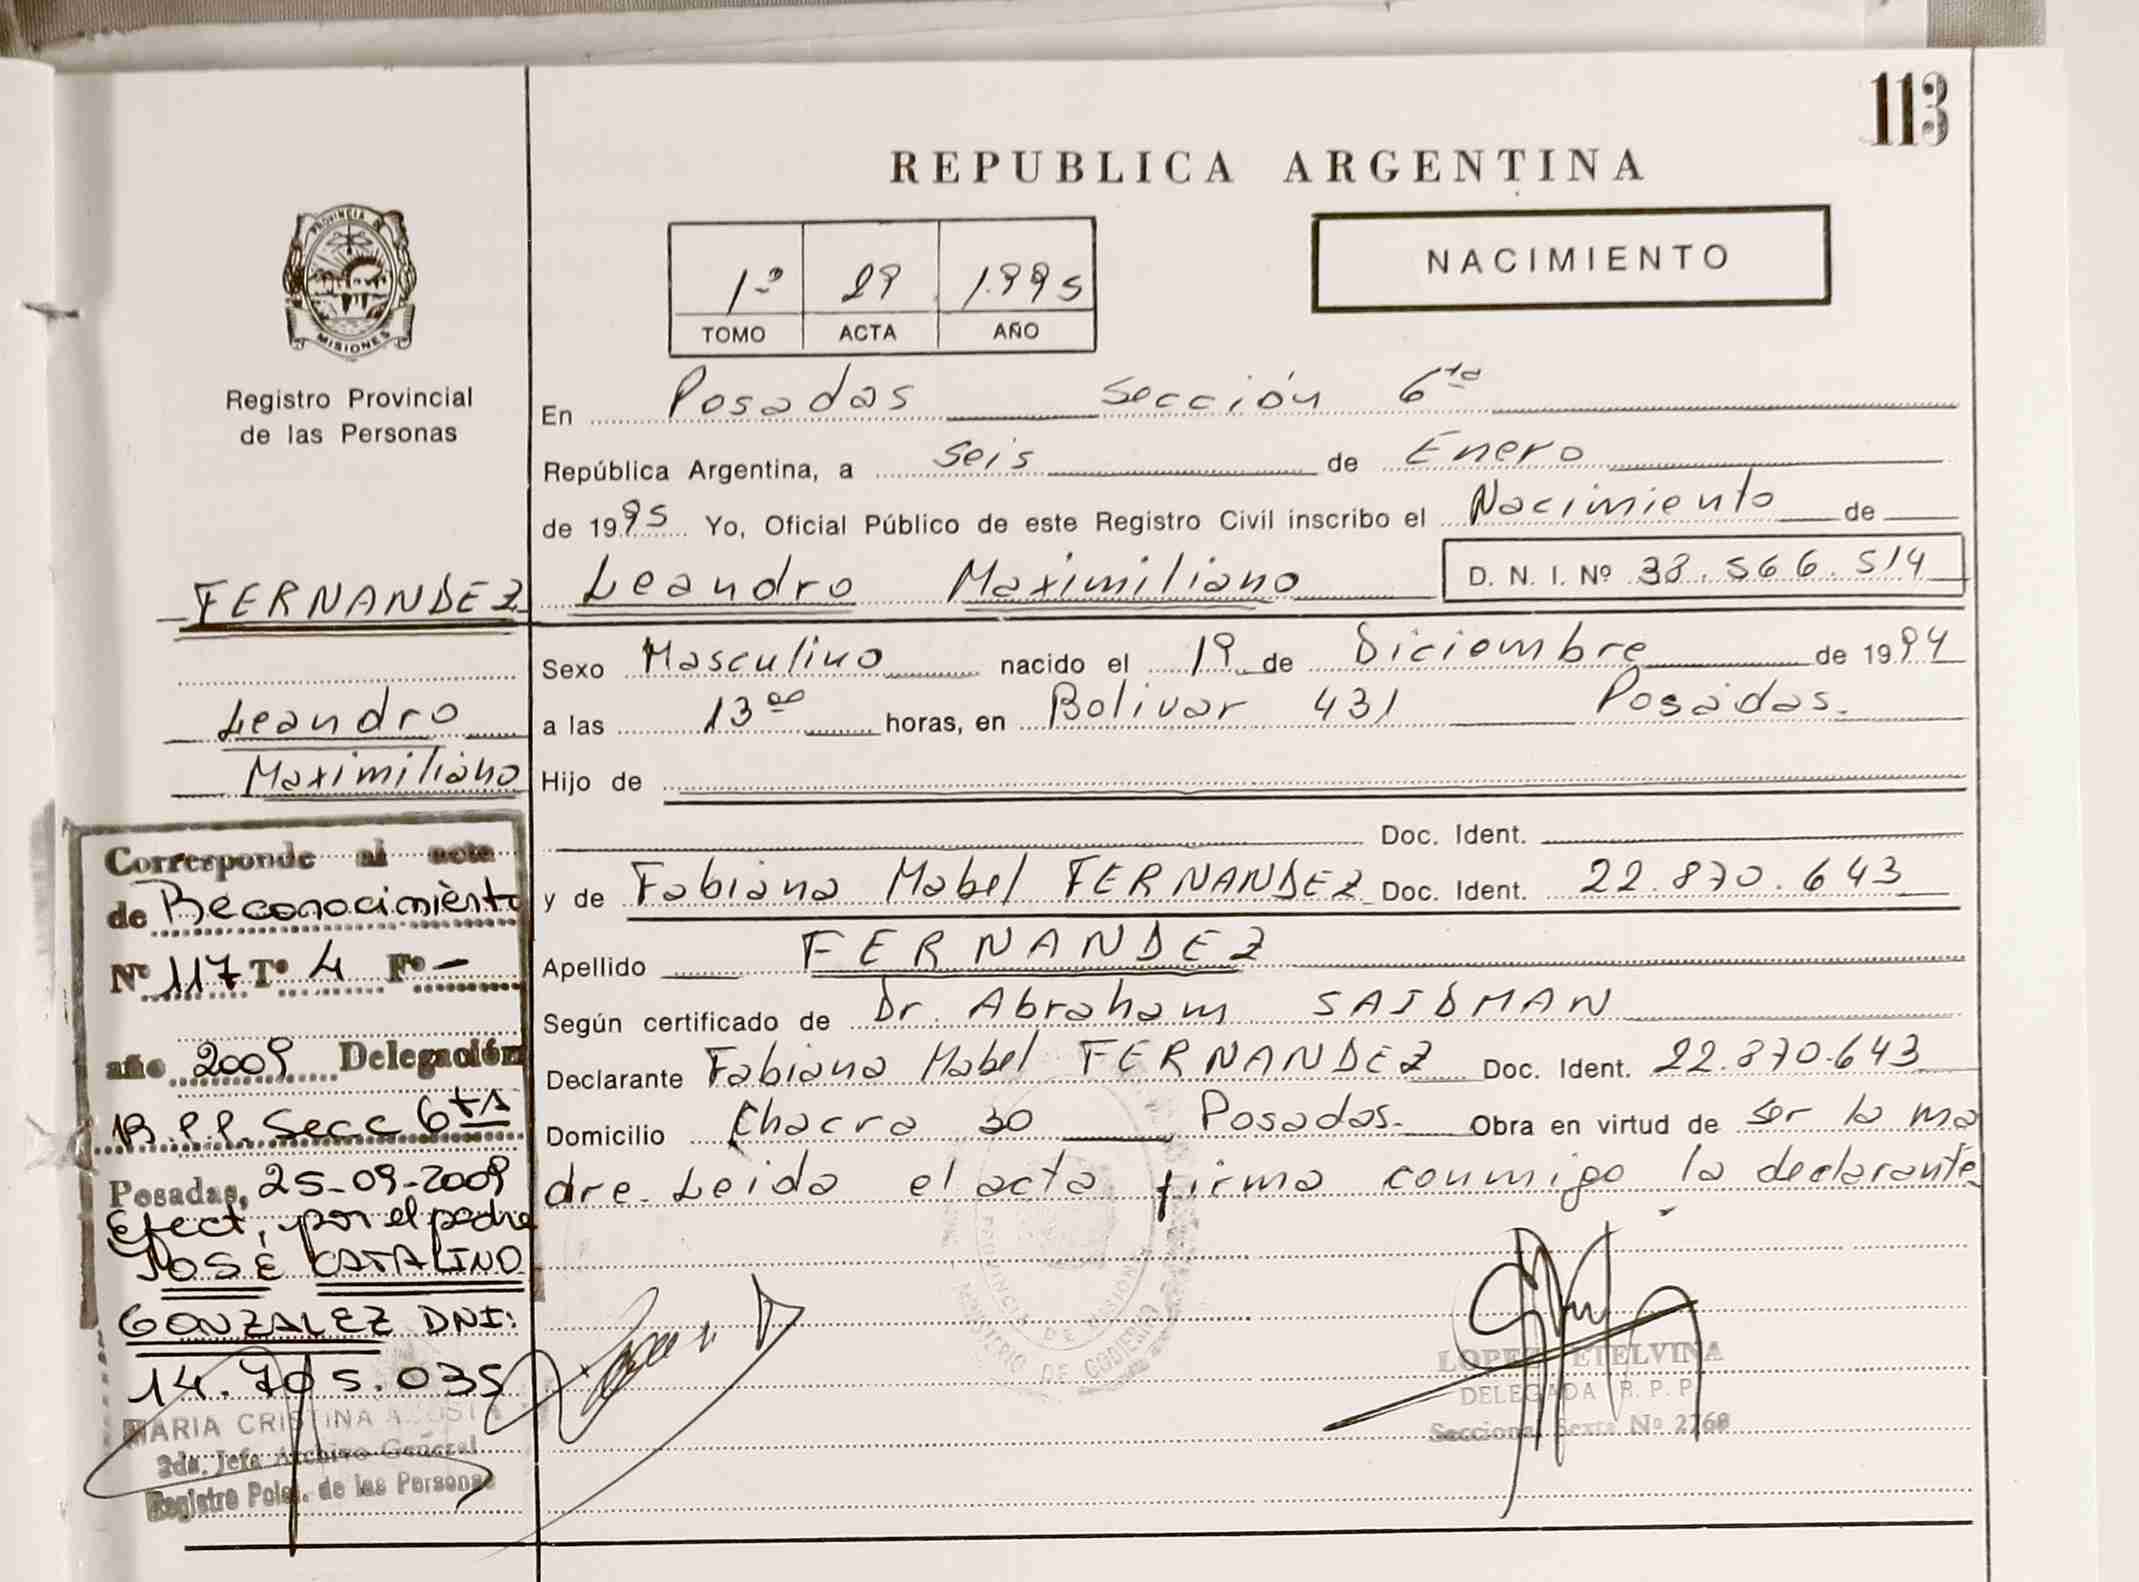 113
REPUBLICA ARGENTINA
NACIMIENTO
1º 29 1995
TOMO ACTA AÑO
PROVINCIA DE
MISIONES
Registro Provincial
de las Personas
En Posadas Sección 6ta
República Argentina, a seis de Enero
de 1995 Yo, Oficial Público de este Registro Civil inscribo el Nacimiento de
FERNANDEZ Leandro Maximiliano D. N. I. Nº 38.566.514
Sexo Masculino nacido el 19 de Diciembre de 1994
Leandro
a las 13 00 horas, en Bolivar 431 Posadas.
Maximiliano
Hijo de
Doc. Ident.
y de Fabiana Mabel FERNANDEZ Doc. Ident. 22.870.643
Apellido FERNANDEZ
Según certificado de Dr. Abraham SAIDMAN
Declarante Fabiana Mabel FERNANDEZ Doc. Ident. 22.870.643
Domicilio Chacra 30 Posadas. Obra en virtud de ser la ma
dre. Leida el acta firma conmigo la declarante
Corresponde al acta
de Reconocimiento
Nº 117 Tº 4 Fº -
año 2009 Delegación
R.P.P. Secc 6ta
Posadas, 25-09-2009
Efect, por el padre
JOSE CATALINO
GONZALEZ DNI:
14.705.035
MARIA CRISTINA ACOSTA
2da. Jefa Archivo General
Registro de las Personas
PROVINCIA DE MISIONES
MINISTERIO DE GOBIERNO
LOPEZ ETELVINA
DELEGADA R. P. P.
Seccional Sexta Nº 2768